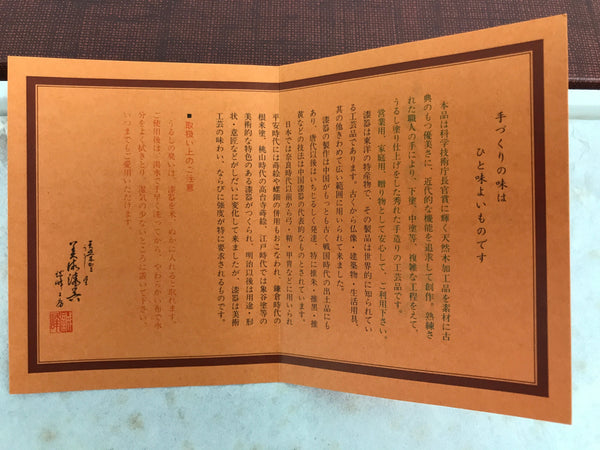 手づくりの味は
ひと味よいものです
本品は科学技術庁長官賞に輝く天然木加工品を素材に古
典のもつ優美さに、近代的な機能を追求して創作。熟練さ
れた職人の手により、下塗、中塗等、複雑な工程をへて、
うるし塗り仕上げをした秀れた手造りの工芸品です。
営業用、家庭用、贈り物として安心して、ご利用下さい。
漆器は東洋の特産物で、その製品は世界的に知られてい
る工芸品であります。古くから仏像・建築物・生活用具、
其の他きわめて広い範囲に用いられて来ました。
漆器の製作は中国がもっとも古く戦国時代の出土品にも
あり、唐代以後はいちじるしく発達、特に推朱・推黒・推
黄などの技法は中国漆器の代表的なものとされています。
日本では奈良時代以前から弓・鞘・甲冑などに用いられ
平安時代には蒔絵や螺鈿の併用もおこなわれ、鎌倉時代の
根来塗、桃山時代の高台寺蒔絵、江戸時代では象谷塗等の
美術的な特色のある漆器がつくられ、明治以後は用途・形
状・意匠などがしだいに変化して来ましたが、漆器は美術
工芸の味わい、ならびに強度が特に要求されるものです。
■取扱い上のご注意
うるしの臭いは、漆器を米、ぬかに入れると取れます。
ご使用後は、真水で手早く洗い、やわらかい布で水
分をよく拭きとり、湿気の少ないところに置いて下さい。
いつまでもご愛用いただけます。